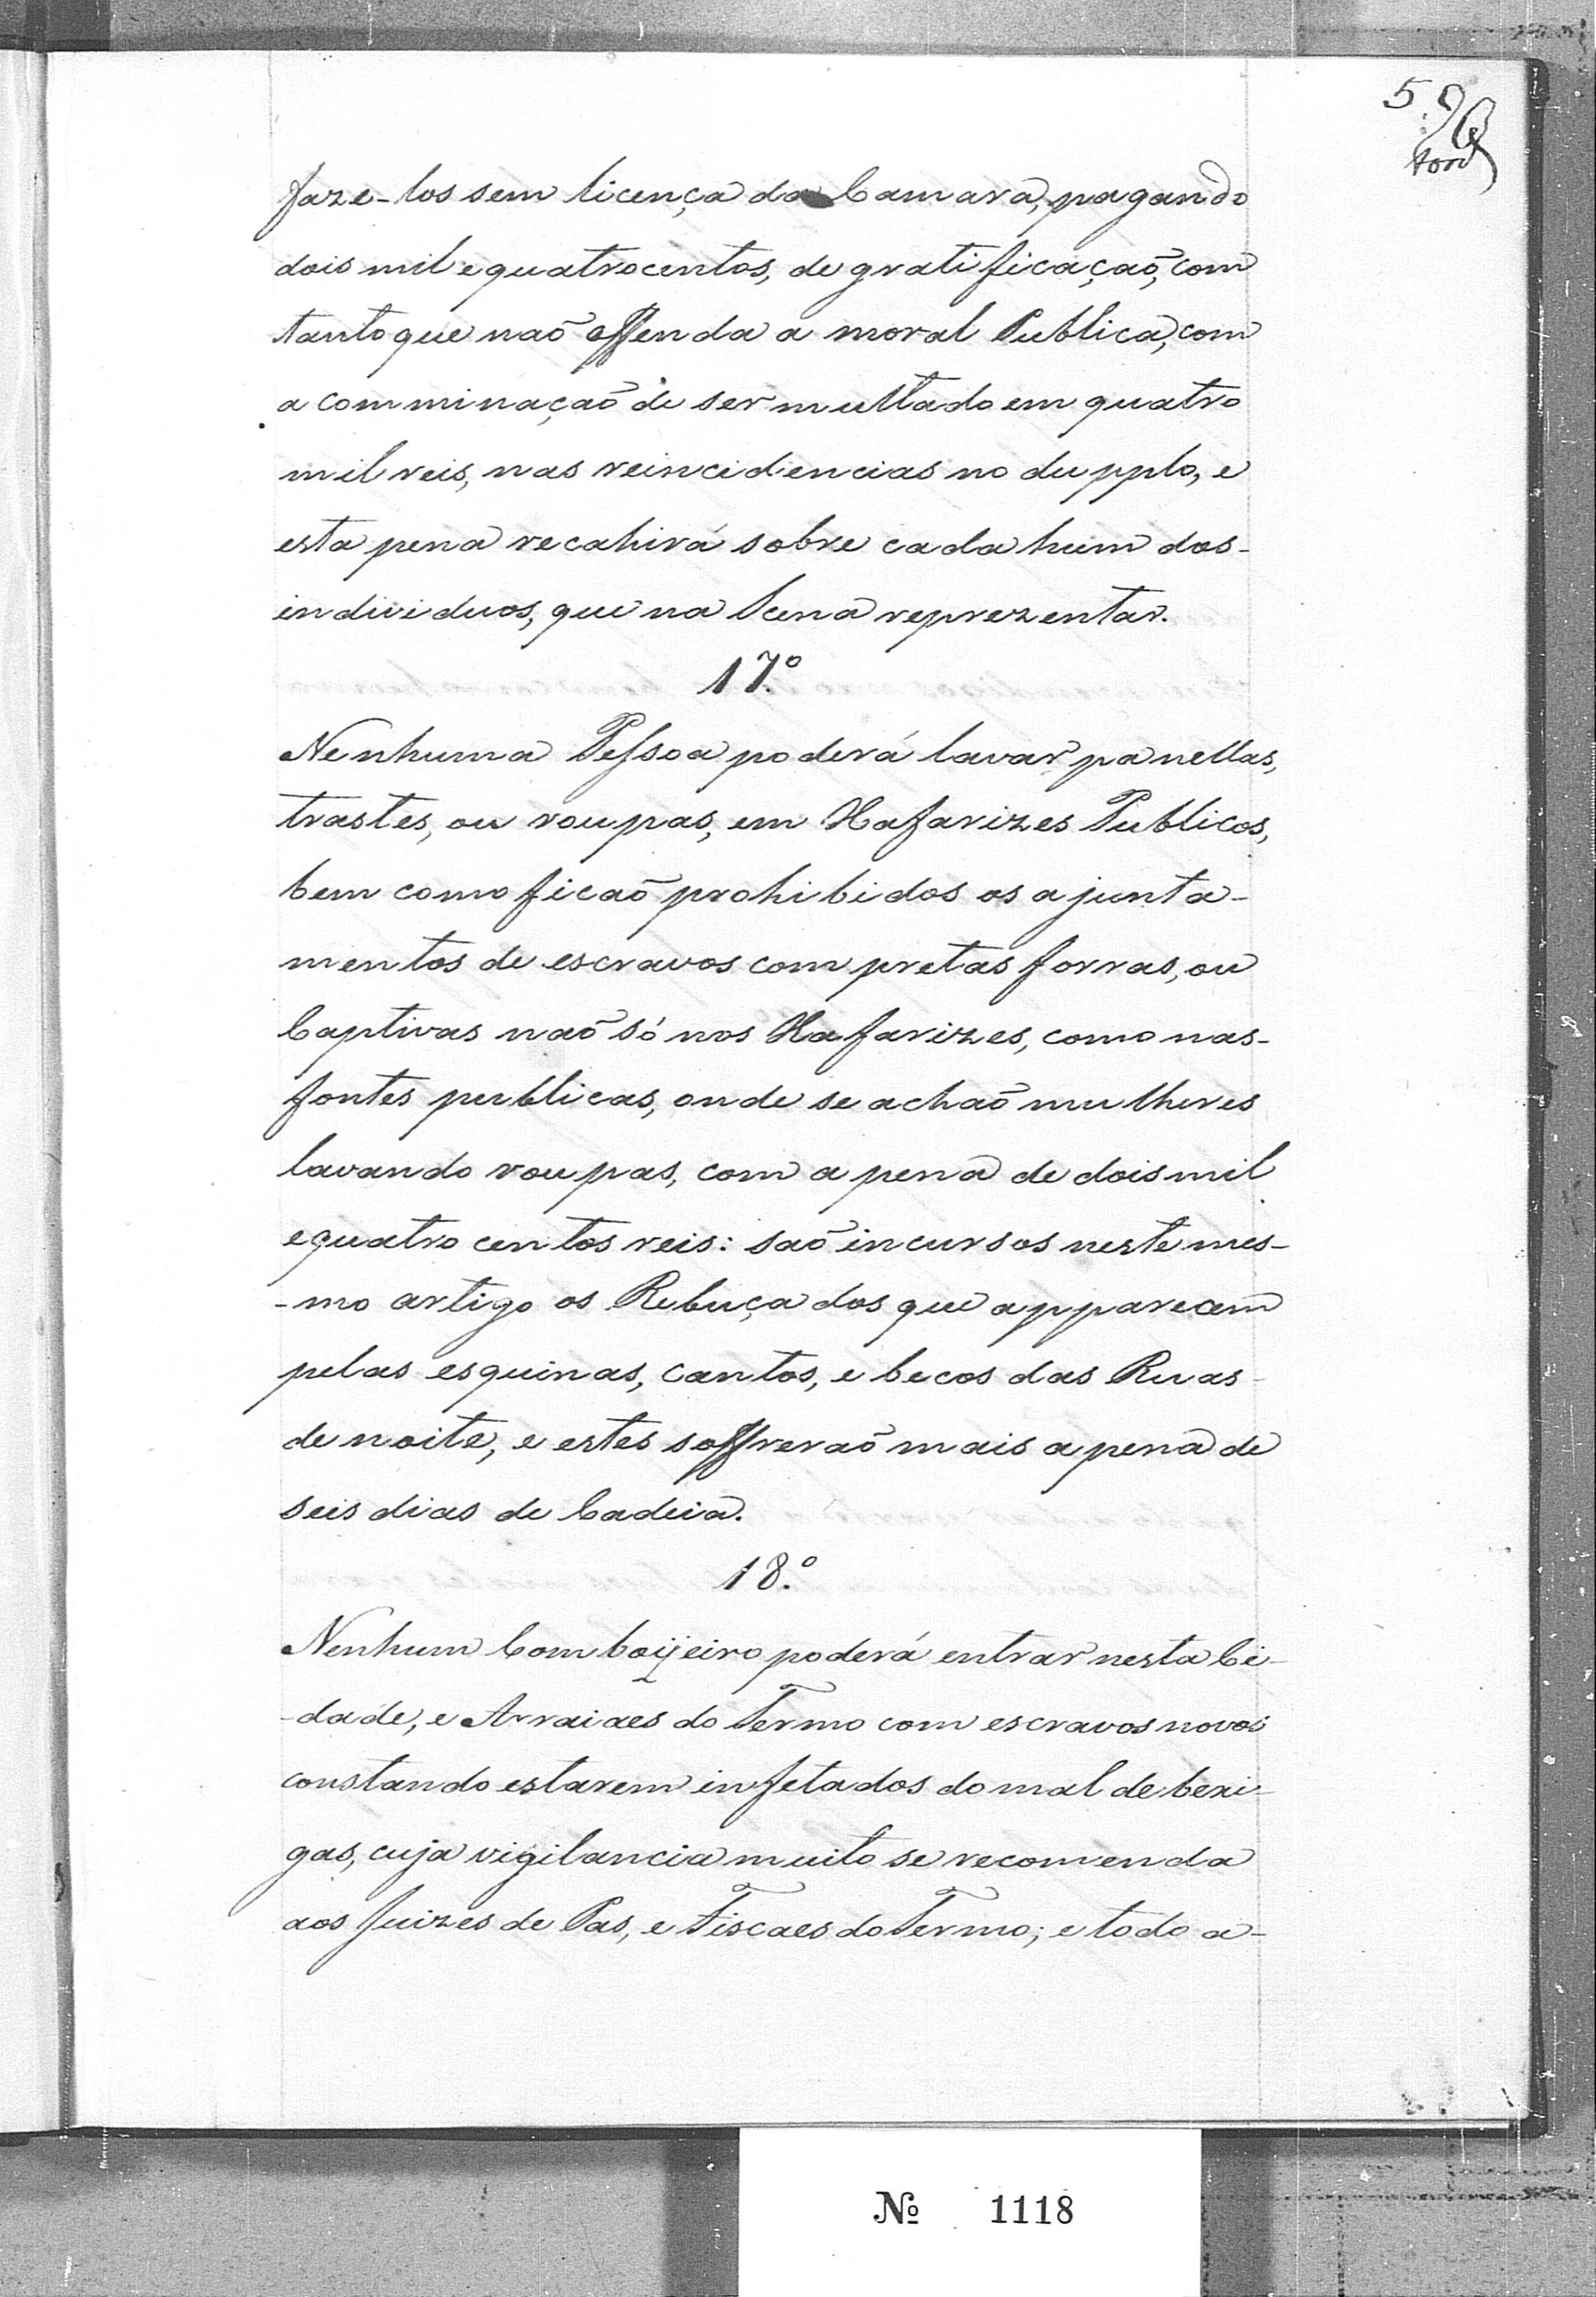 5
faze-los sem licença da Camara, pagando
dois mil e quatrocentos, de gratificaçaõ, com
tanto que naõ offenda a moral Publica, com
a comminaçaõ de ser multado em quatro
mil reis, nas reincidencias no dupplo, e
esta pena recahirá sobre cada hum dos-
individuos, que na Scena reprezentar.
17.º
Nenhuma Pessoa poderá lavar panellas,
trastes, ou roupas, em Xafarizes Publicos,
bem como ficaõ prohibidos os ajunta-
mentos de escravos com pretas forras, ou
Captivas naõ só nos Xafarizes, como nas-
fontes publicas, onde se achaõ mulheres
lavando roupas, com a pena de dois mil
e quatro centos reis: saõ incursos neste mes-
-mo artigo os Rebuçados que apparecem
pelas esquinas, cantos, e becos das Ruas-
de noite, e estes soffreraõ mais a pena de
seis dias de Cadeia.
18.º
Nenhum Comboijeiro poderá entrar nesta Ci-
-dade, e Arraiaes do Termo com escravos novos
constando estarem infetados do mal de bexi-
gas, cuja vigilancia muito se recomenda
aos Juizes de Pas, e Fiscaes do Termo; e todo a-
Nº 1118